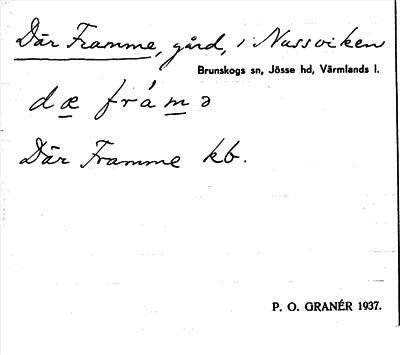 Där Framme, gård, i Nussviken
Brunskogs sn, Jösse hd, Värmlands l.
dæ fråmə
Där Framme kb.
P. O. GRANÉR 1937.